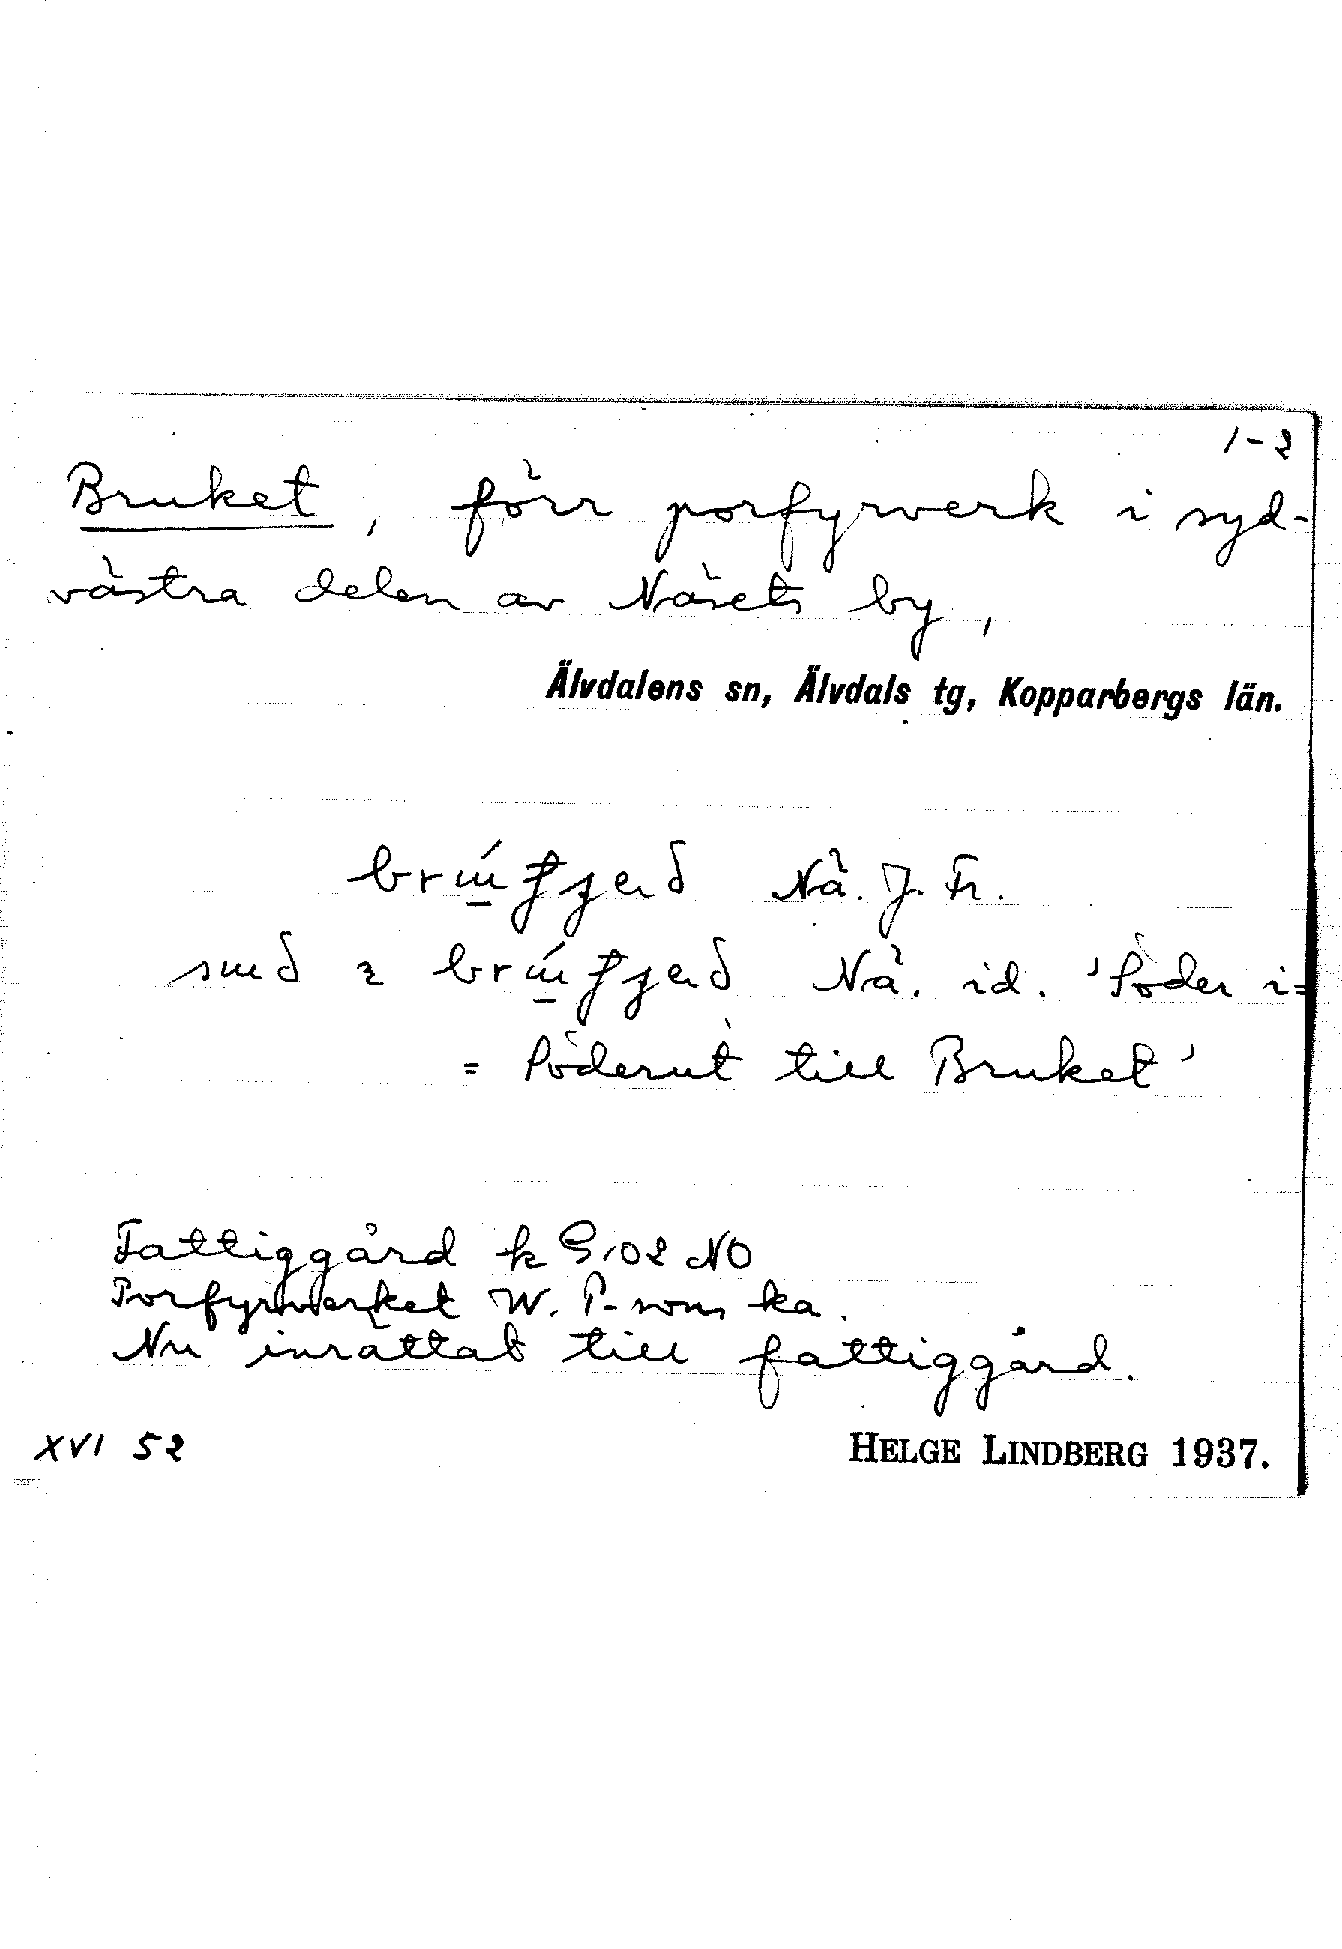 1-2
Bruket, förr porfyrverk i syd-
västra delen av Näsets by,
Älvdalens sn, Älvdals tg, Kopparbergs län.
Nä. J. Fr.
Nä. id. 'Söder i=
= Söderut till Bruket'
Fattiggård k G 102 NO
Porfyrverket W. P-sons ka.
Nu inrättat till fattiggård.
XVI 52
HELGE LINDBERG 1937.